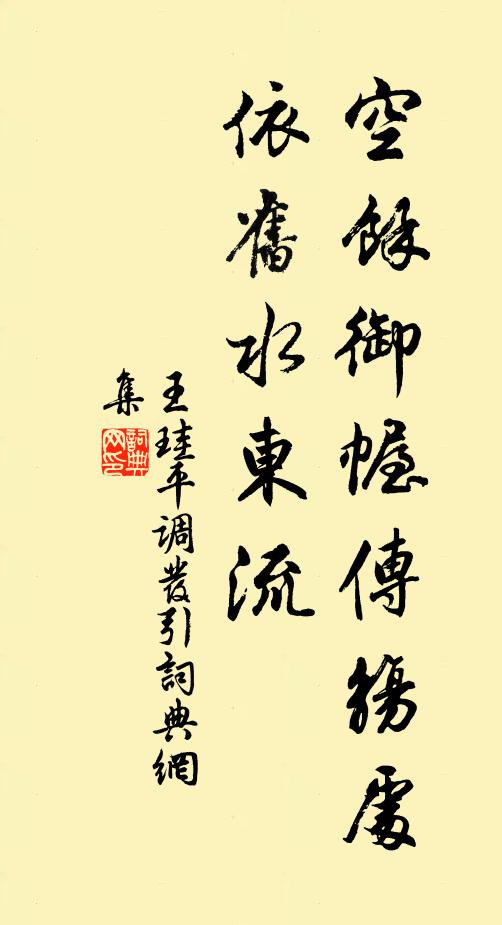 空餘御幄傳觴處
依舊水東流
王珪平调發引詞典網
集
詞典网印